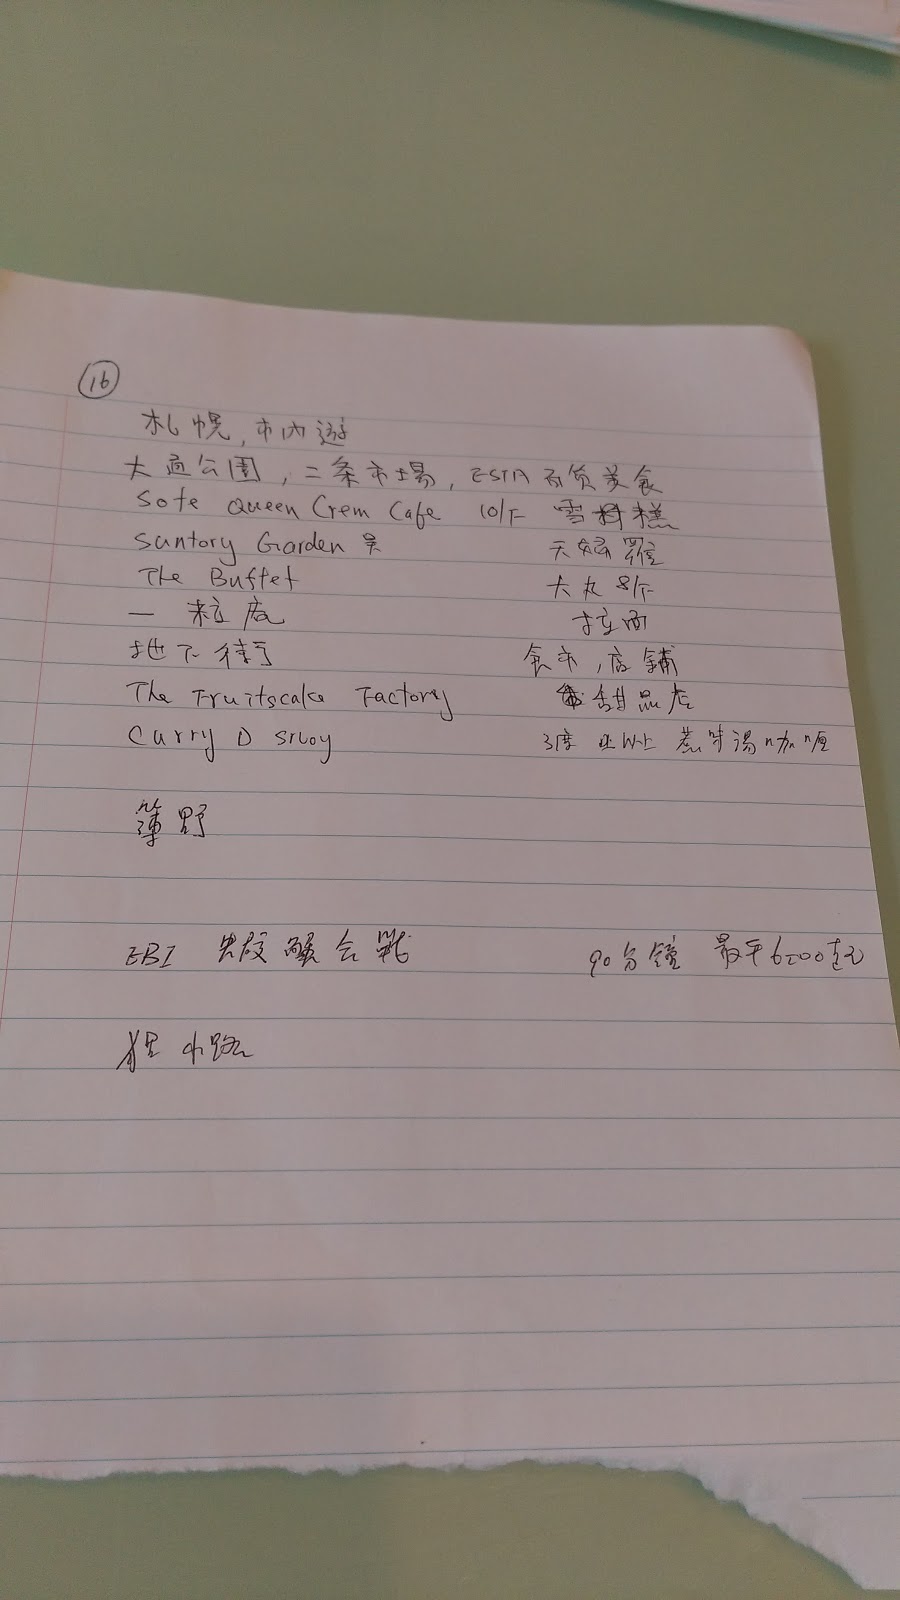 16
札幌, 市內遊
大通公園, 二条市場, ESTA 百货美食
Sote Queen Crem Cafe 10/F 雪糕
Suntory Garden 昊 天婦羅
The Buffet 大丸 8/F
一粒庵 拉面
地下街 食市, 店舖
The Fruitscake Factory 甜品店
Curry D Sivoy 3度 以上 惹味湯咖喱
薄野
EBI 蟹合戰 90分鐘 最平6200
狸小路